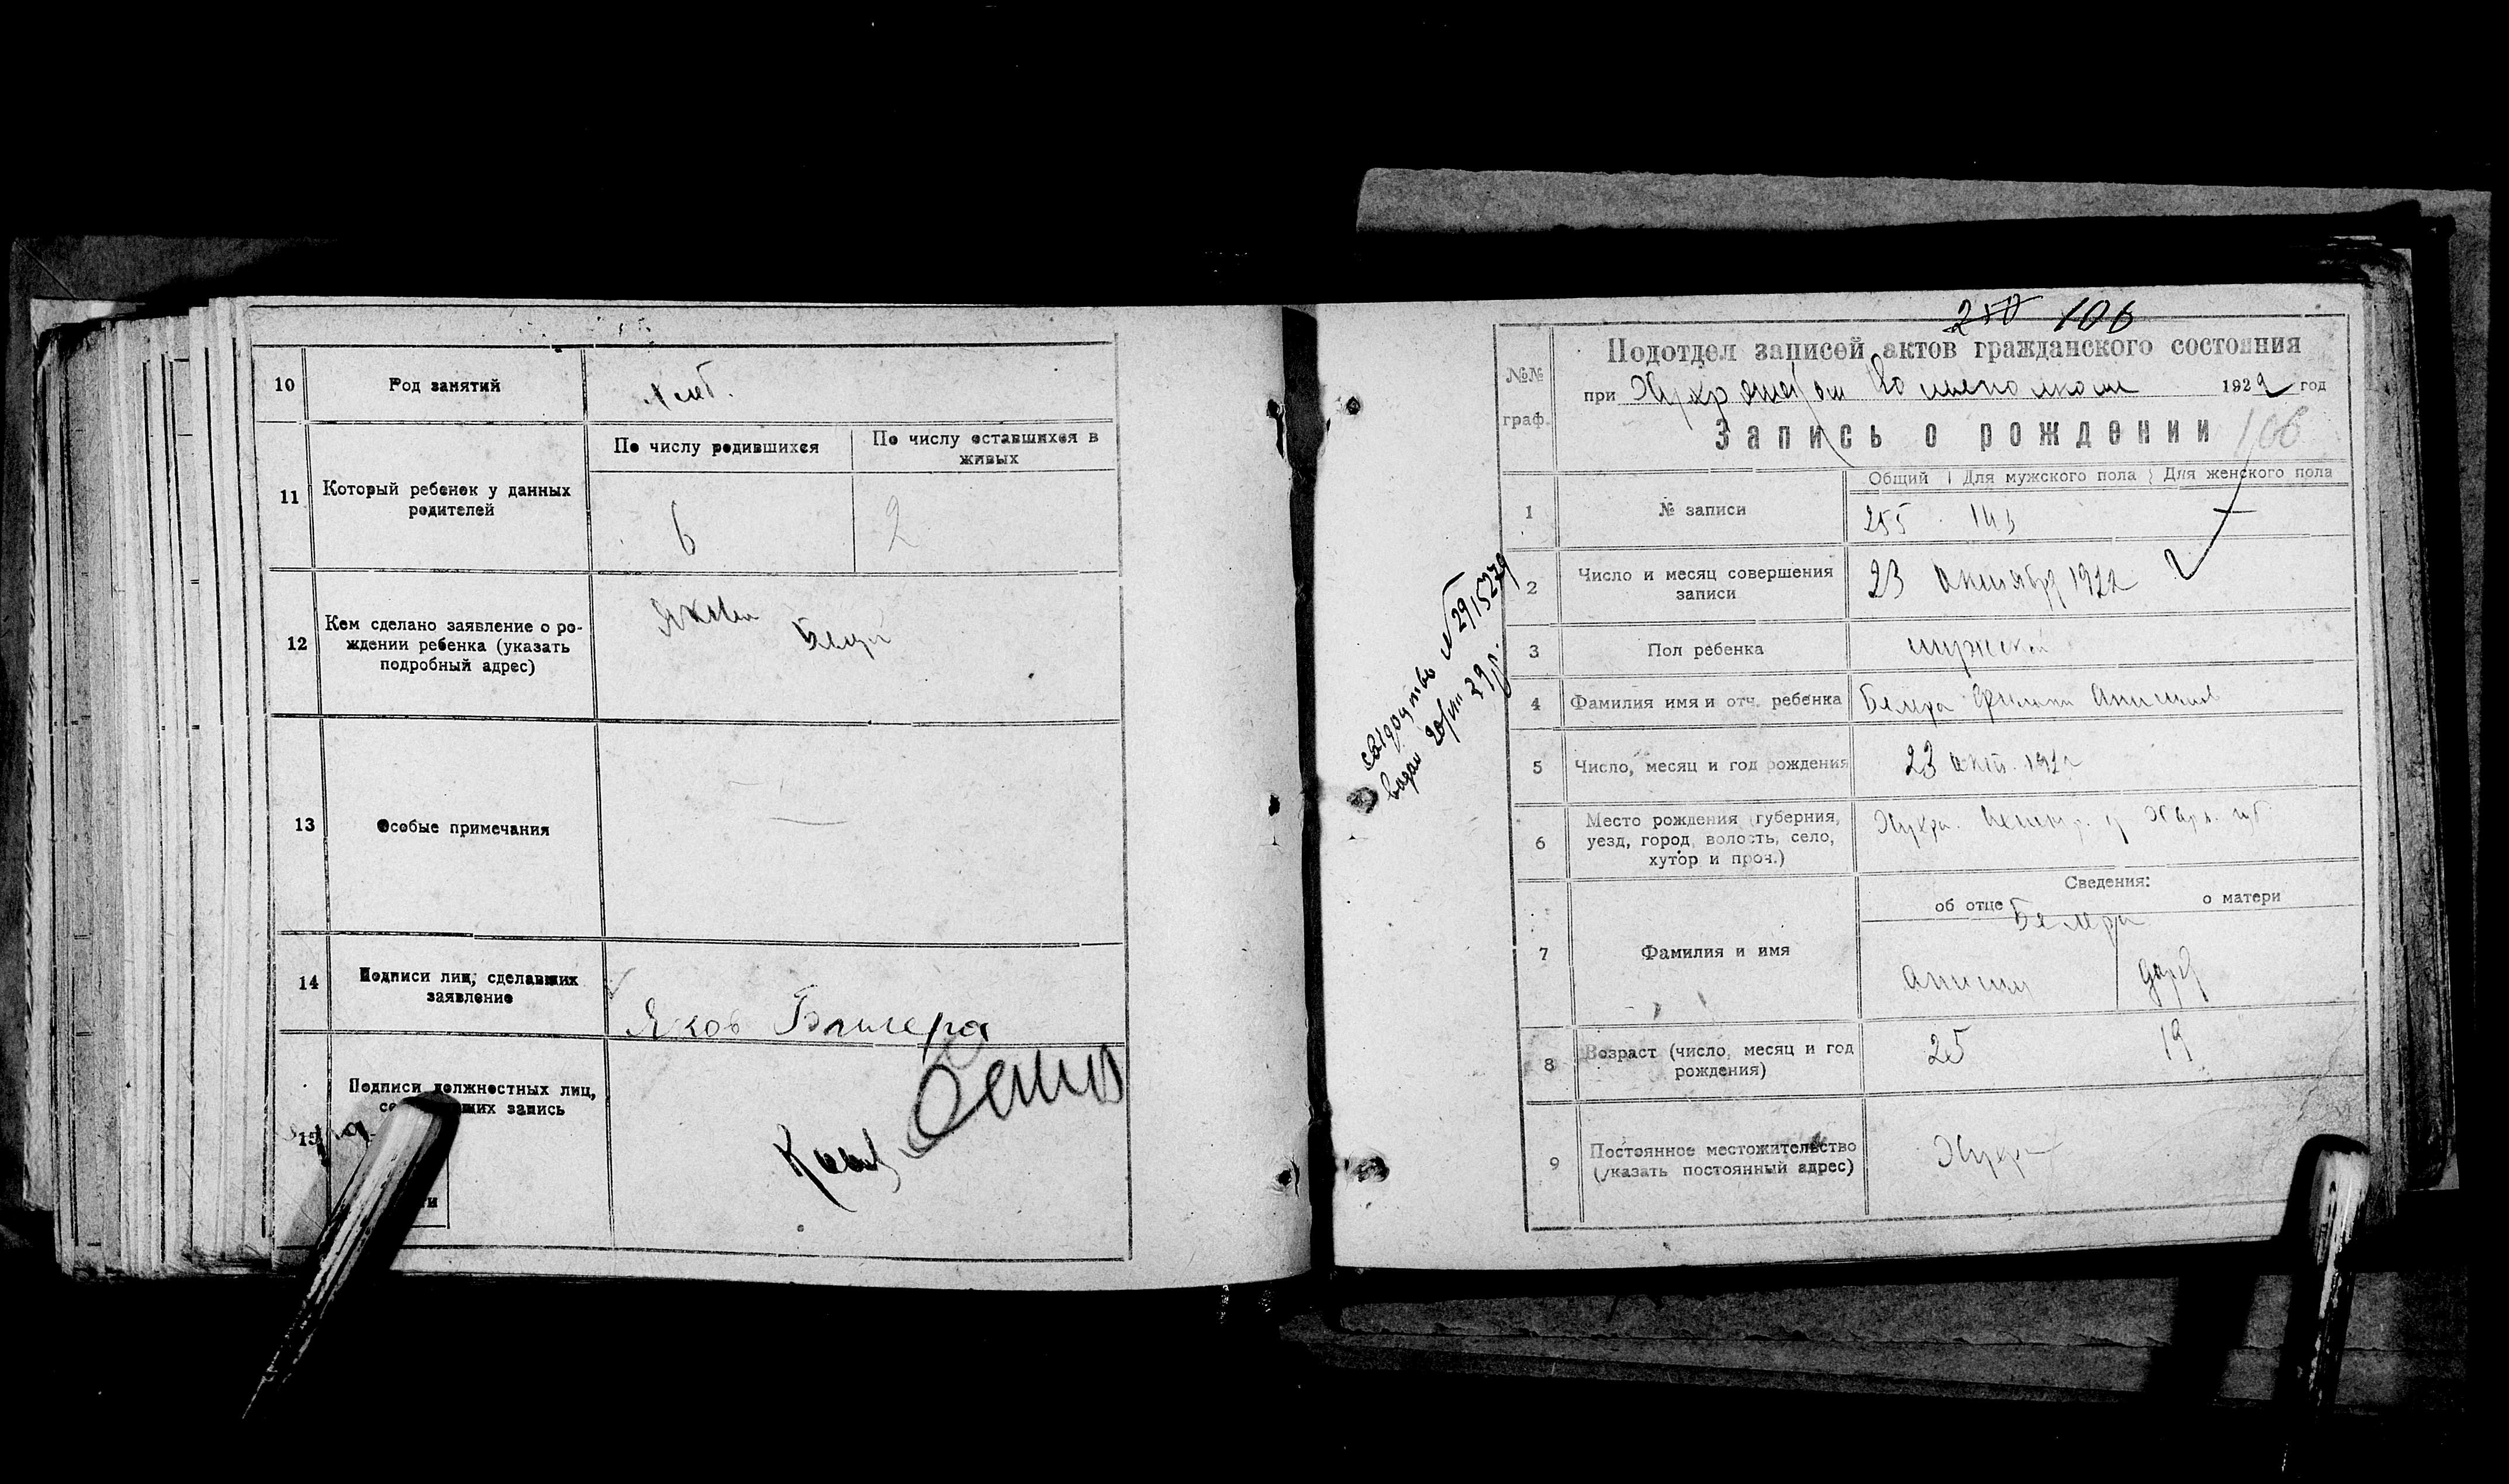 10
Род занятий
хлеб.
11
Который ребенок у данных
родителей
По числу родившихся
По числу оставшихся в
живых
6
2
12
Кем сделано заявление о ро-
ждении ребенка (указать
подробный адрес)
Яков
13
Особые примечания
—
14
Подписи лиц, сделавших
заявление
Яков Бямера
15
Подписи должностных лиц,
запись
250 106
№№
граф.
Подотдел записей актов гражданского состояния
при 1922 год
Запись о рождении 106
1
№ записи
Общий
Для мужского пола
Для женского пола
255
143
—
2
Число и месяц совершения
записи
23 октября 1922
3
Пол ребенка
мужской
4
Фамилия имя и отч. ребенка
Бямера Филипп Анисимов
5
Число, месяц и год рождения
23 окт. 1922
6
Место рождения (губерния,
уезд, город, волость, село,
хутор и проч.)
Хухра. Харк. губ
Сведения:
об отце
о матери
7
Фамилия и имя
Бямера
Анисим
Дарья
8
Возраст (число, месяц и год
рождения)
25
19
9
Постоянное местожительство
(указать постоянный адрес)
Хухра
свидоцтво № 2915229
видал 20/VIII 39 р.